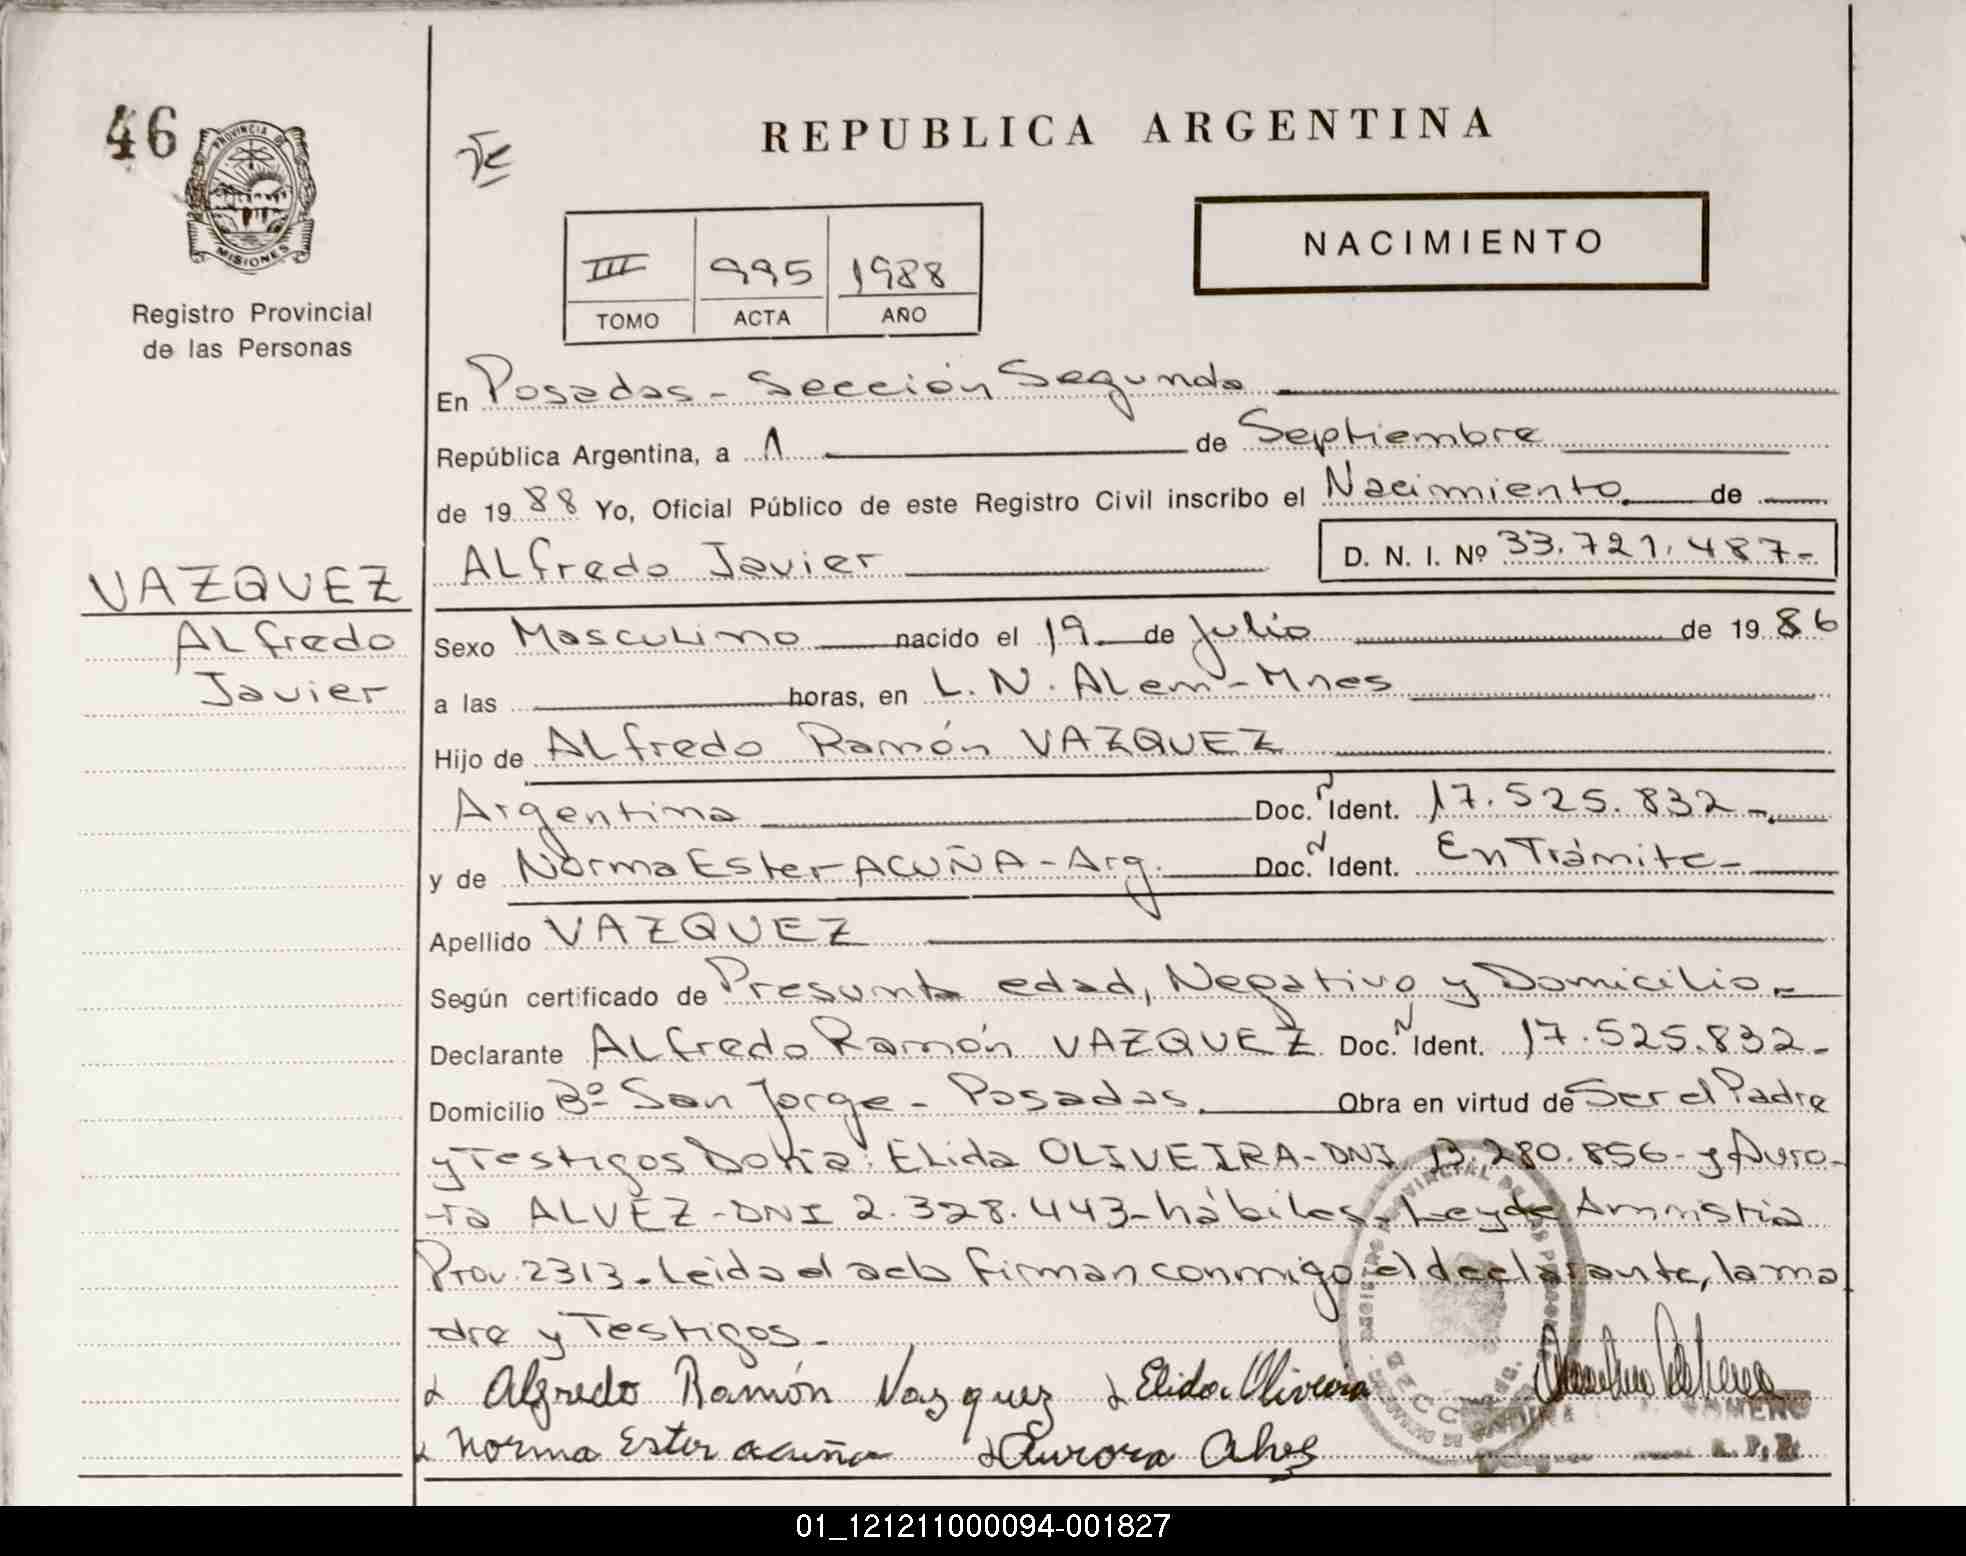 46
PROVINCIA DE
MISIONES
Registro Provincial
de las Personas
REPUBLICA ARGENTINA
NACIMIENTO
III 995 1988
TOMO ACTA AÑO
En Posadas - Sección Segunda
República Argentina, a 1 de Septiembre
de 1988 Yo, Oficial Público de este Registro Civil inscribo el Nacimiento de
Alfredo Javier D. N. I. Nº 33.721.487-
VAZQUEZ
Alfredo
Javier
Sexo Masculino nacido el 19 de Julio de 1986
a las horas, en L. N. Alem - Mnes
Hijo de Alfredo Ramón VAZQUEZ
Argentina Doc. Ident. 17.525.832-
y de Norma Ester ACUÑA - Arg. Doc. Ident. En Trámite-
Apellido VAZQUEZ
Según certificado de Presunta edad, Negativo y Domicilio-
Declarante Alfredo Ramón VAZQUEZ Doc. Ident. 17.525.832-
Domicilio Bº San Jorge - Posadas Obra en virtud de Ser el Padre
y Testigos Doña: Elida OLIVEIRA - DNI 13.280.856- y Auro-
ra ALVEZ - DNI 2.328.443- hábiles. Ley de Amnistia
Prov. 2313. Leida el acta firman conmigo el declarante, la ma
dre y Testigos-
Alfredo Ramón Vazquez Elida Oliveira
Norma Ester acuña Aurora Alves
01_121211000094-001827